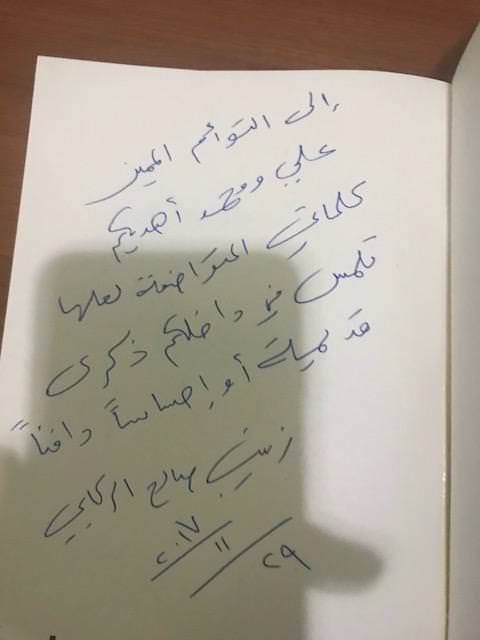 إلى التوائم المميزين
علي ومحمد أهديكم
كلماتي المتواضعة لعلها
تلمس في داخلكم ذكرى
قديمة أو إحساساً دافئاً
زينب صالح الركابي
٢٠١٧/١١/٢٩